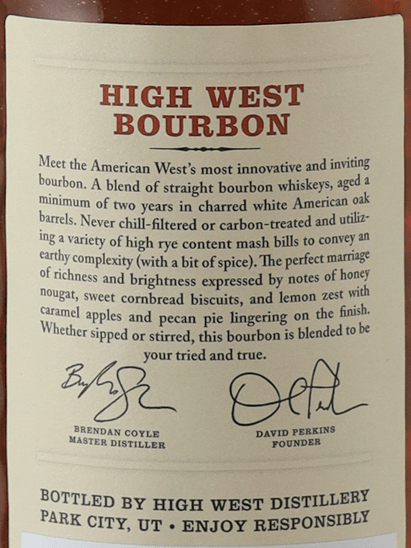 HIGH WEST
BOURBON
Meet the American West's most innovative and inviting
bourbon. A blend of straight bourbon whiskeys, aged a
minimum of two years in charred white American oak
barrels. Never chill-filtered or carbon-treated and utiliz-
ing a variety of high rye content mash bills to convey an
earthy complexity (with a bit of spice). The perfect marriage
of richness and brightness expressed by notes of honey
nougat, sweet cornbread biscuits, and lemon zest with
caramel apples and pecan pie lingering on the finish.
Whether sipped or stirred, this bourbon is blended to be
your tried and true.
BRENDAN COYLE
MASTER DISTILLER
DAVID PERKINS
FOUNDER
BOTTLED BY HIGH WEST DISTILLERY
PARK CITY, UT • ENJOY RESPONSIBLY